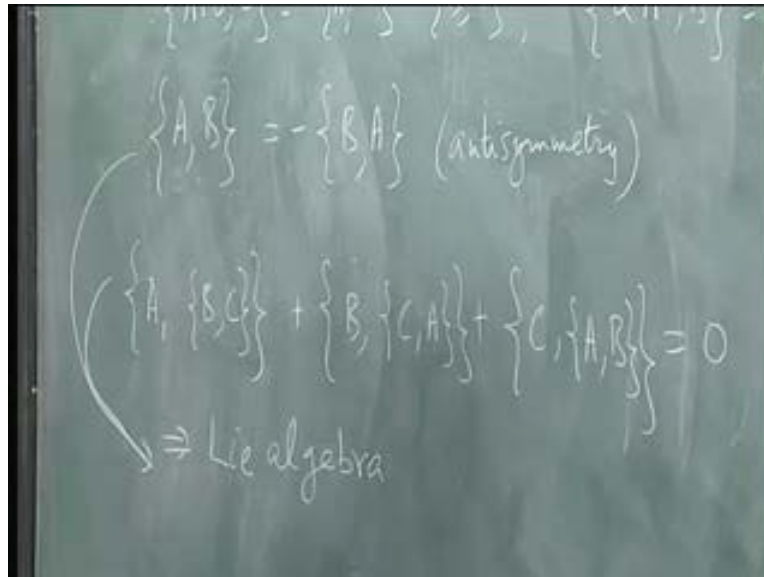 {A,B} = -{B,A} (antisymmetry)
{A, {B,C}} + {B, {C,A}} + {C, {A,B}} = 0
⇒ Lie algebra